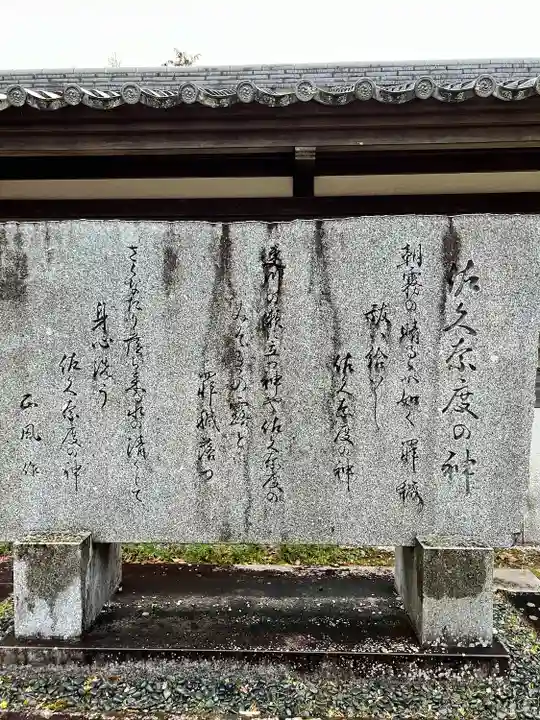 佐久奈度の神
朝霧の晴るゝ如く罪穢
祓い給いし
佐久奈度の神
速川の瀬立つ神や佐久奈度の
みそぎの露と
罪穢落つ
さくなだり落ち来る水の清くして
身心洗う
佐久奈度の神
正風 作